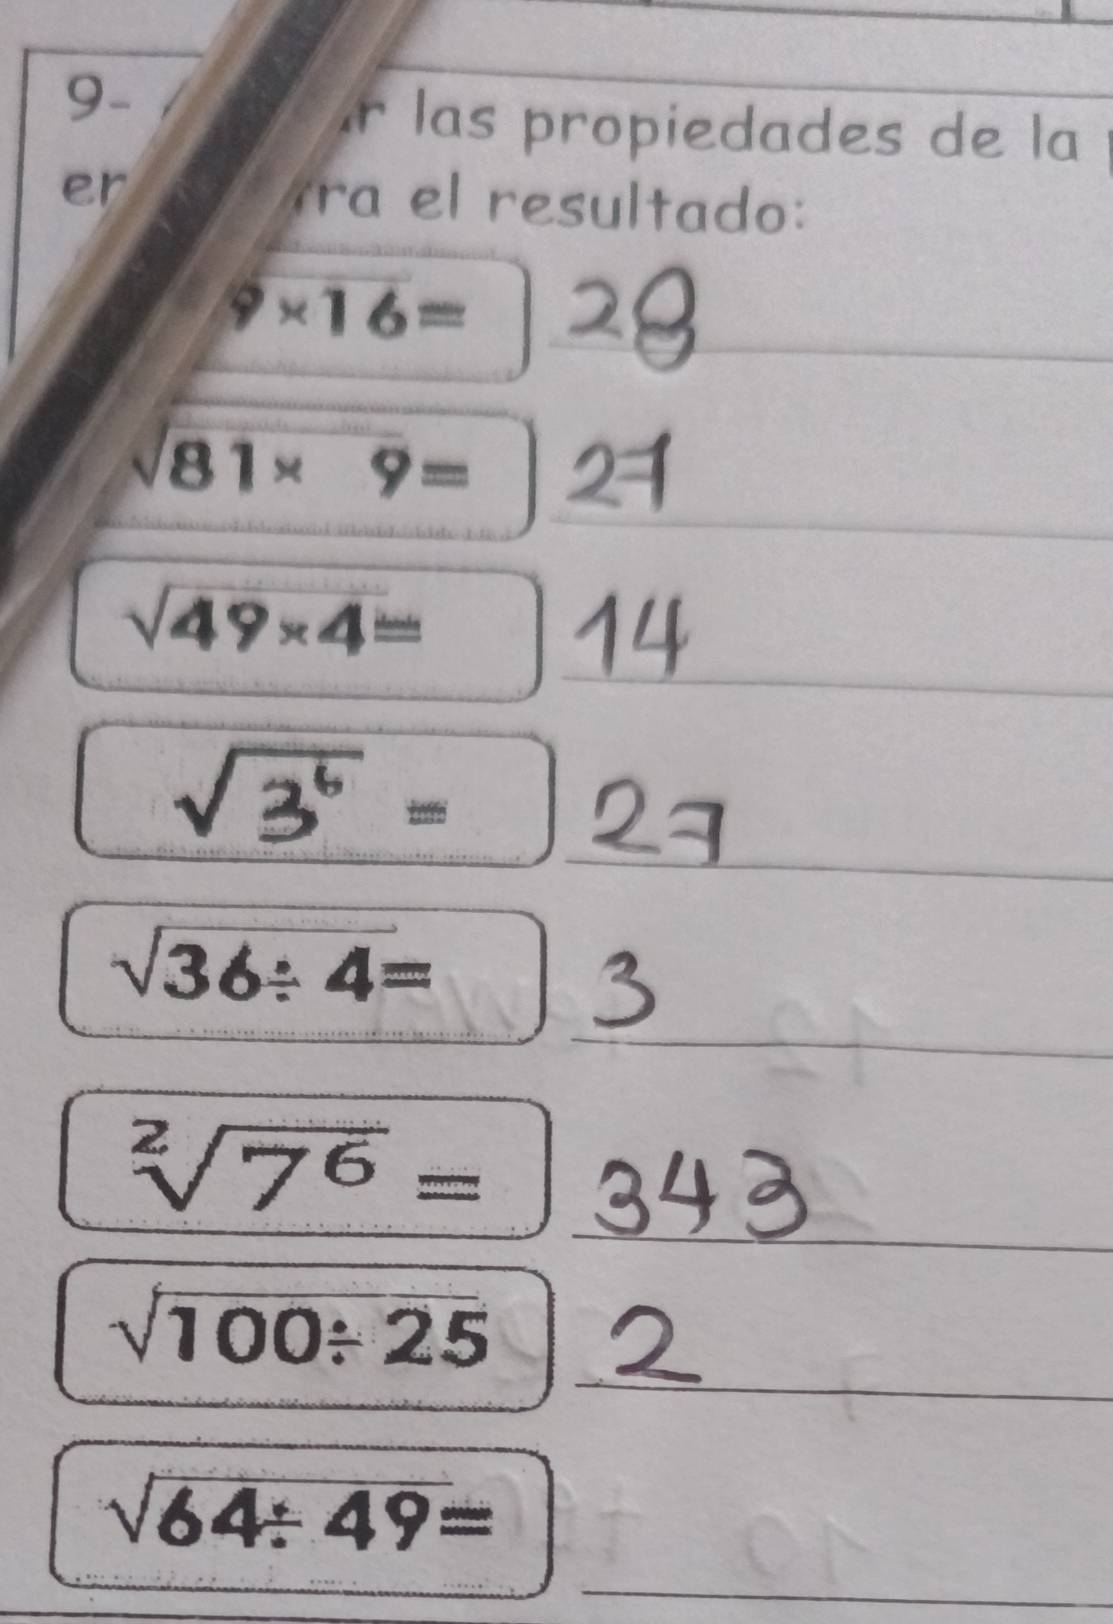 9- las propiedades de la
el resultado:
9×16= 28
√81× 9= 27
√49×4= 14
√3⁶ = 27
√36÷ 4= 3
²√7⁶ = 343
√100÷ 25 2
√64÷ 49=